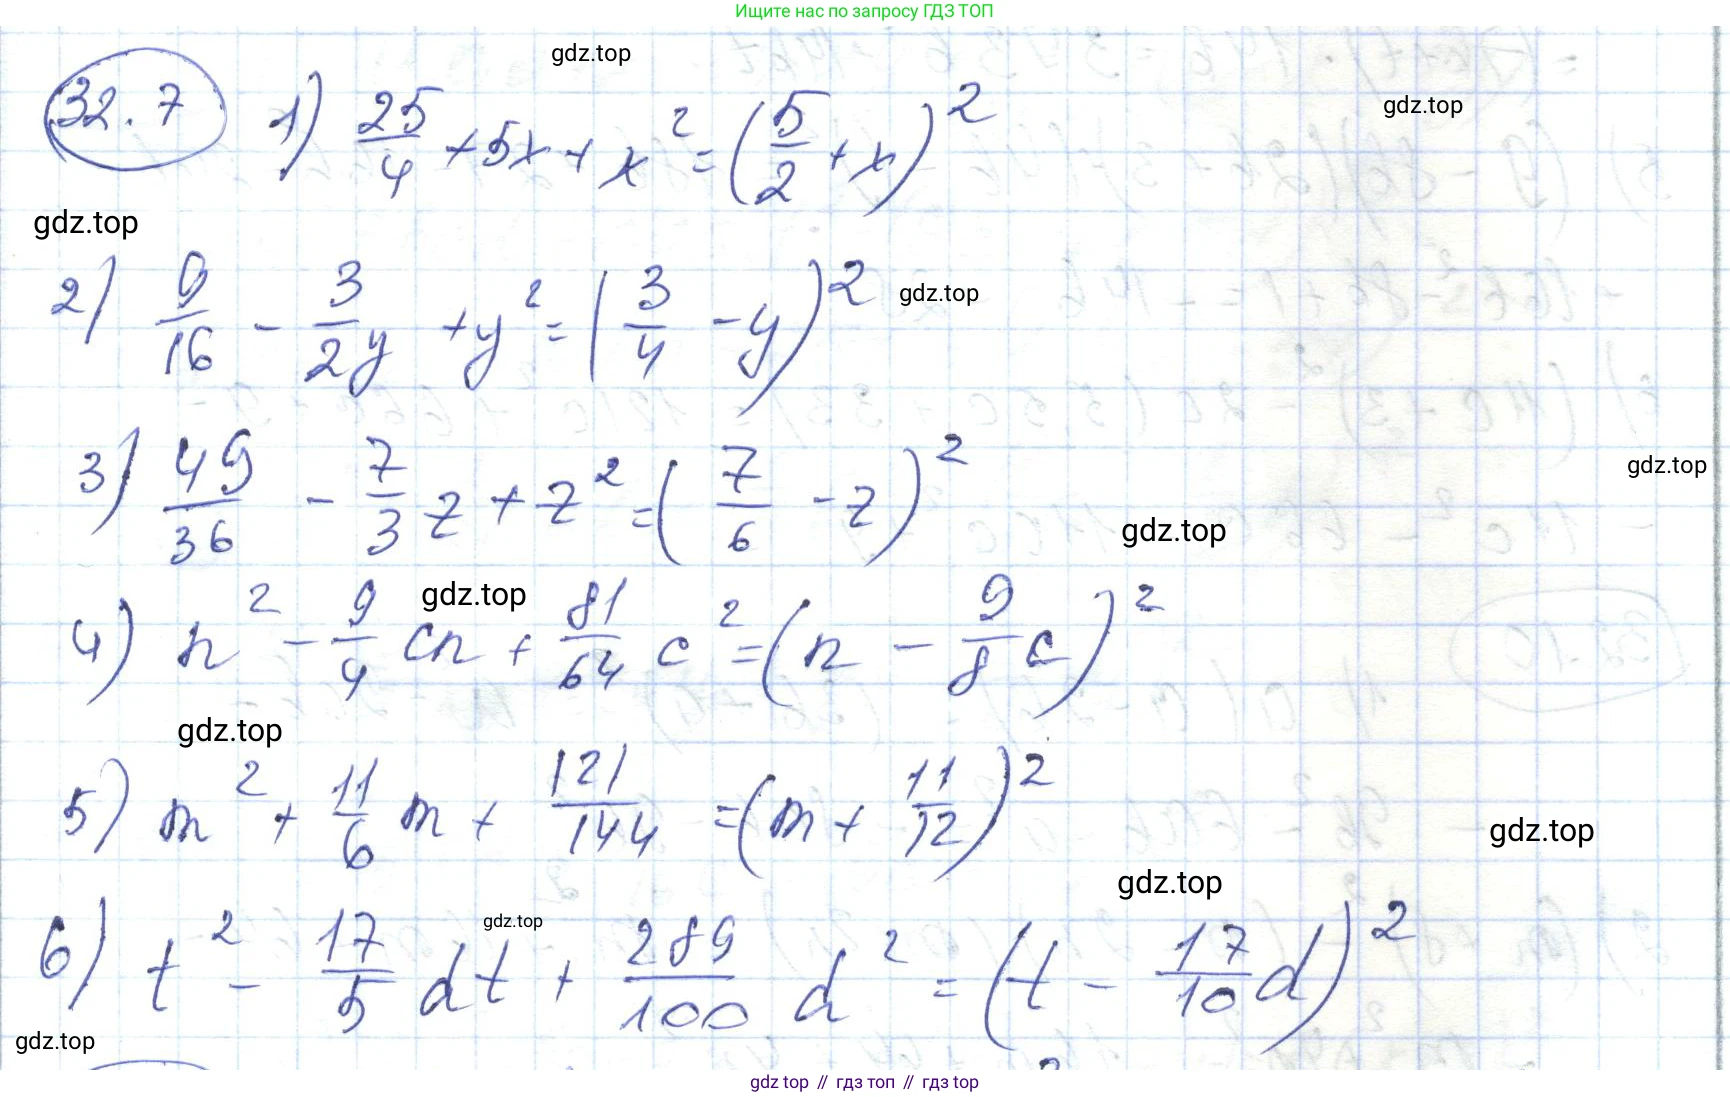 Ищите нас по запросу ГДЗ ТОП
gdz.top
gdz.top
32.7 1) 25/4 + 5x + x² = (5/2 + x)²
gdz.top
2) 9/16 - 3/2y + y² = (3/4 - y)²
gdz.top
3) 49/36 - 7/3 z + z² = (7/6 - z)²
gdz.top
gdz.top
gdz.top
4) n² - 9/4 cn + 81/64 c² = (n - 9/8 c)²
gdz.top
5) m² + 11/6 m + 121/144 = (m + 11/12)²
gdz.top
gdz.top
gdz.top
6) t² - 17/5 dt + 289/100 d² = (t - 17/10 d)²
gdz.top
gdz top // гдз топ // гдз top